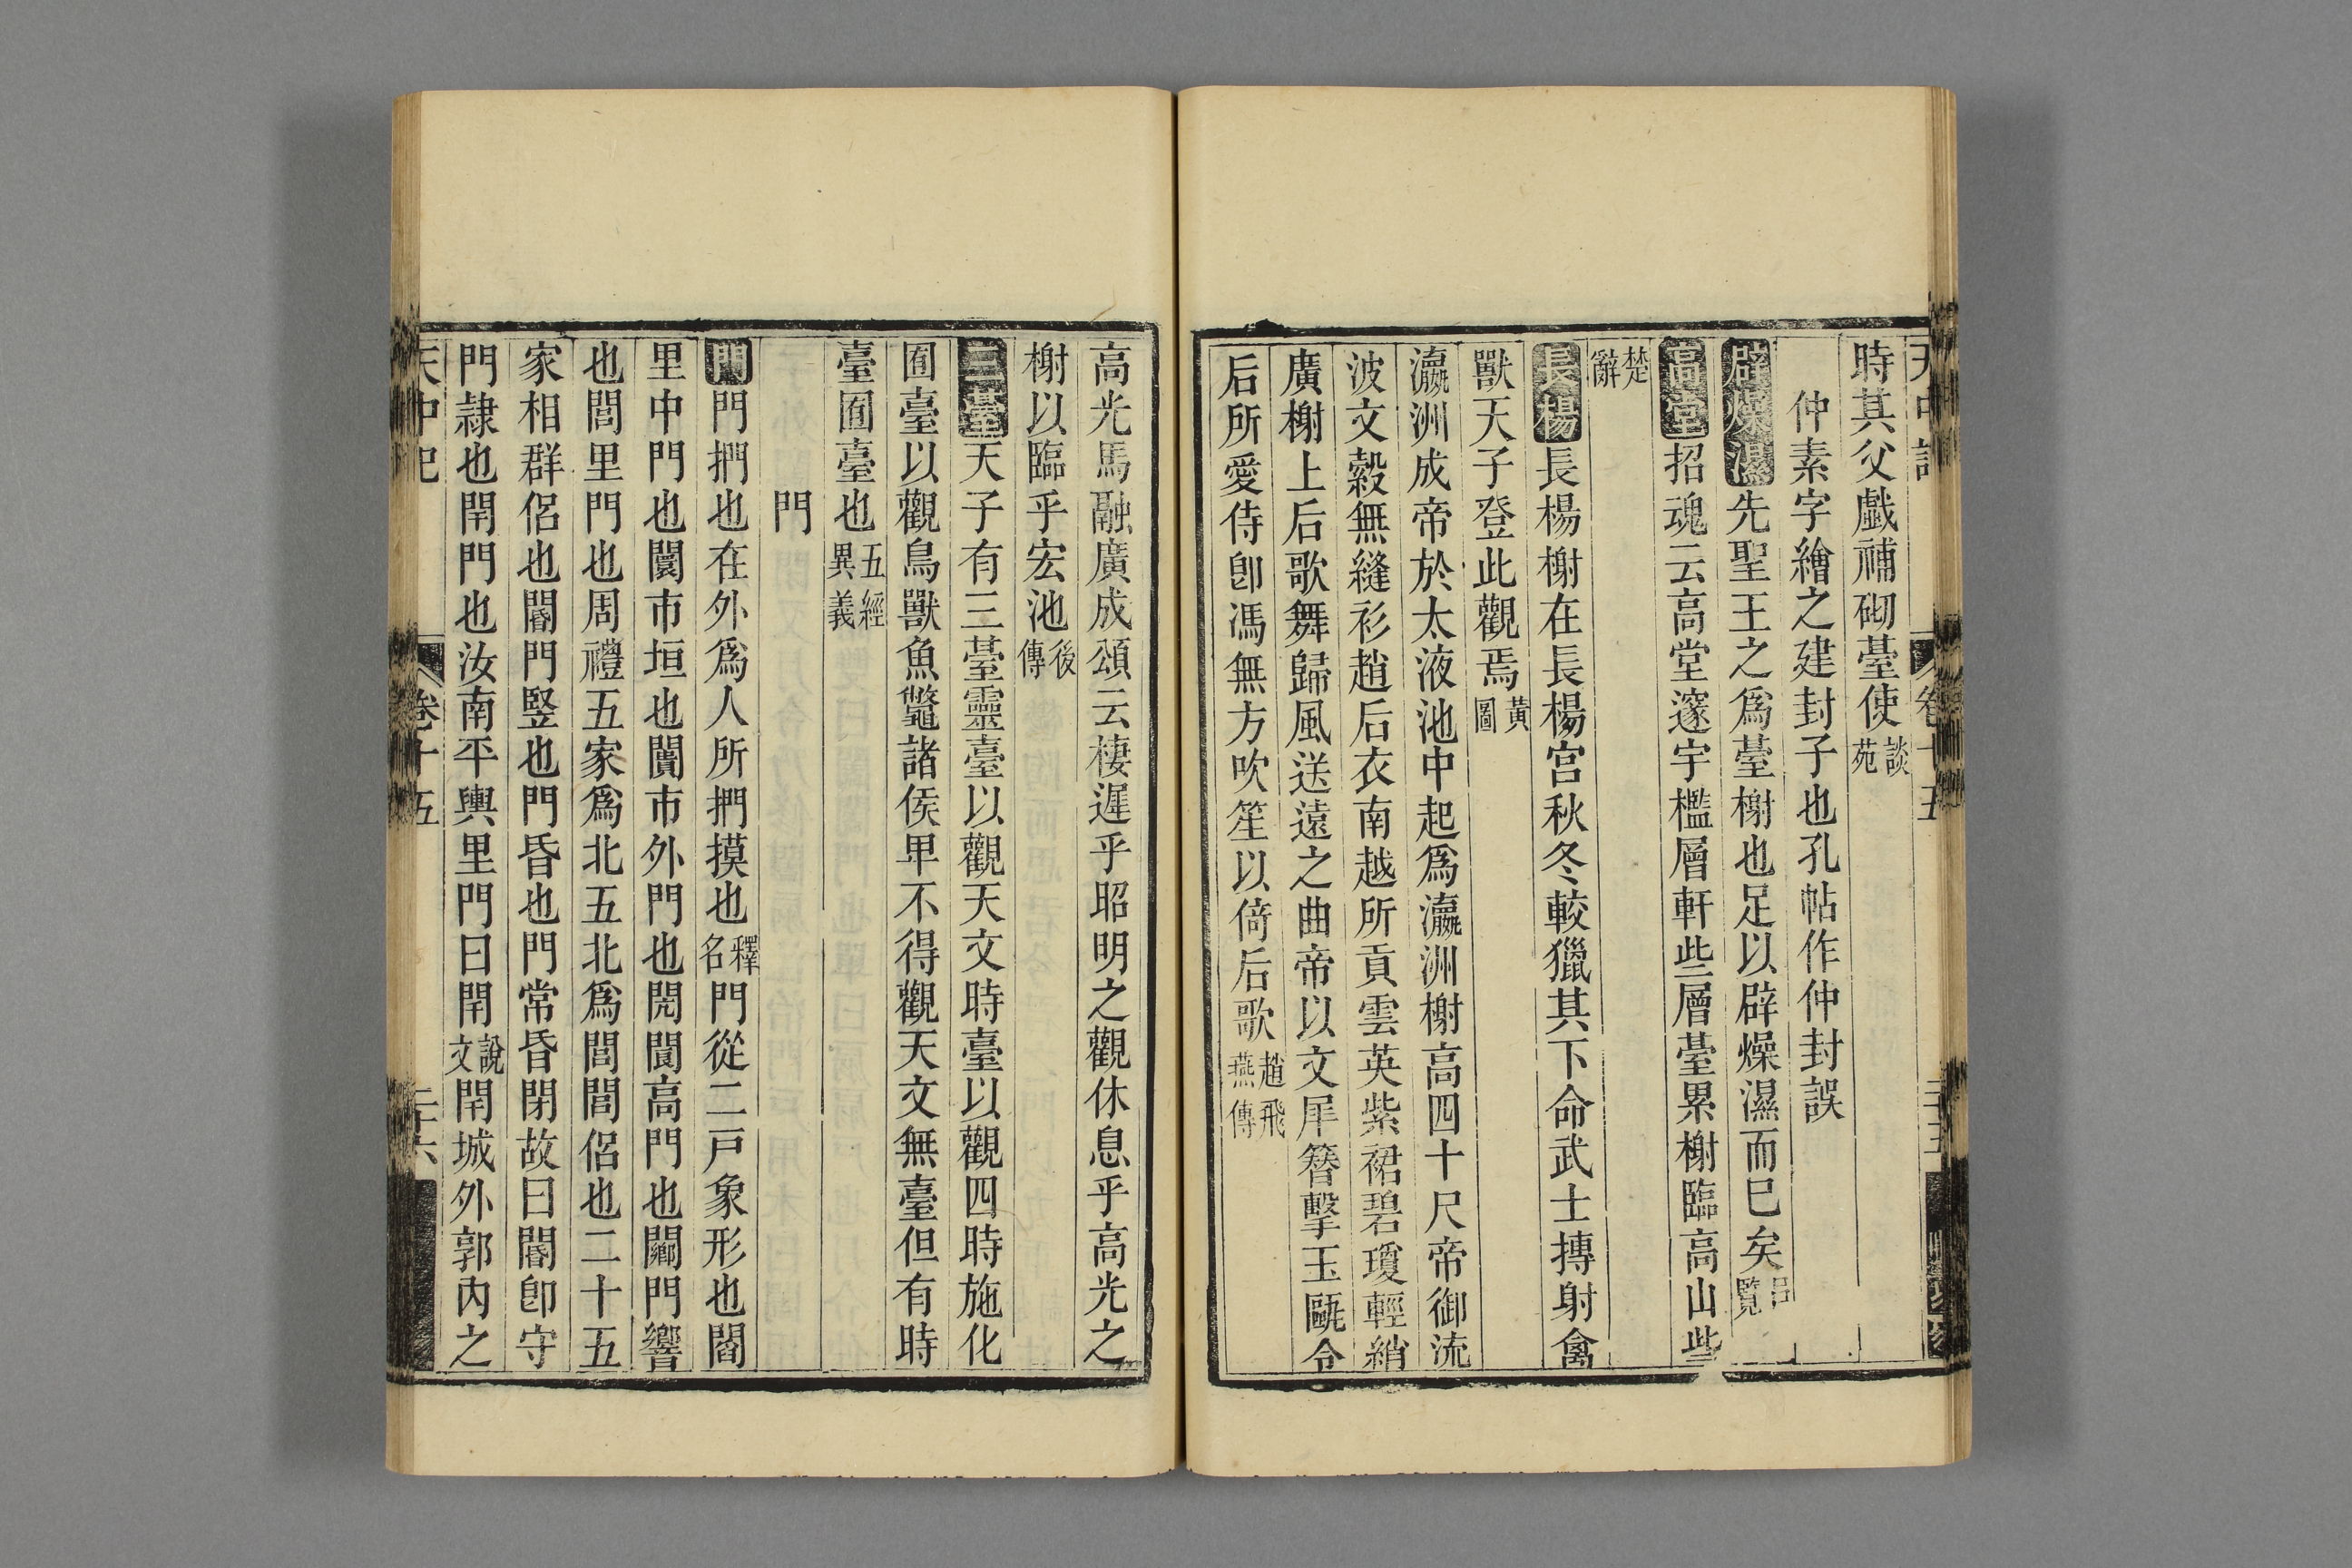 時其父戲補砌䑓使談苑
仲素字繪之建封子也孔帖作仲封誤
辟燥濕先聖王之爲䑓榭也足以辟燥濕而巳矣呂覽
高堂招魂云高堂邃宇檻層軒些層䑓累榭臨高山些
楚辭
長楊長楊榭在長楊宮秋冬較獵其下命武士摶射禽
獸天子登此觀焉黃圖
瀛洲成帝於太液池中起爲瀛洲榭高四十尺帝御流
波文縠無縫衫趙后衣南越所貢雲英紫裙碧瓊輕綃
廣榭上后歌舞歸風送遠之曲帝以文犀簪擊玉甌令
后所愛侍卽馮無方吹笙以倚后歌趙飛燕傳
高光馬融廣成頌云棲遲乎昭明之觀休息乎高光之
榭以臨乎宏池後傳
三臺天子有三䑓靈臺以觀天文時臺以觀四時施化
囿臺以觀鳥獸魚鼈諸侯卑不得觀天文無臺但有時
臺囿臺也五經異義
門
門門捫也在外爲人所捫摸也釋名門從二戸象形也閻
里中門也闤市垣也闠市外門也閌閬高門也闢門響
也閭里門也周禮五家爲北五北爲閭閭侶也二十五
家相群侶也閽門竪也門昏也門常昏閉故曰閽卽守
門隷也閈門也汝南平輿里門曰閈說文閈城外郭內之
天中記 卷十五 二十六